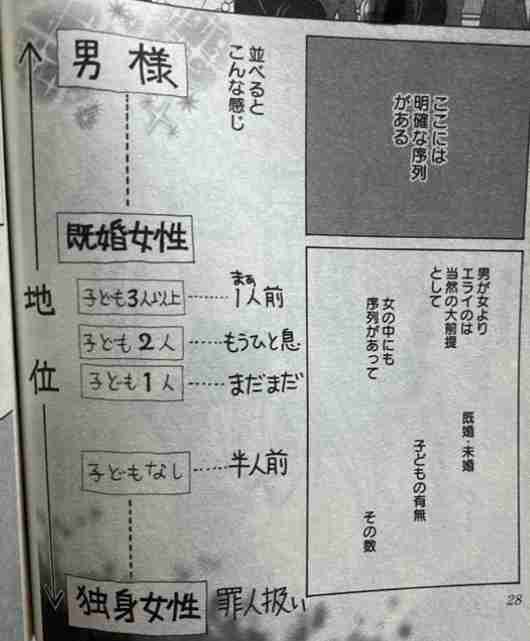 ここには
明確な序列
がある
男が女より
エライのは
当然の大前提
として
女の中にも
序列があって
既婚・未婚
子どもの有無
その数
並べると
こんな感じ
男様
地位
既婚女性
子ども3人以上
まぁ
1人前
子ども2人
もうひと息
子ども1人
まだまだ
子どもなし
半人前
独身女性
罪人扱い
28